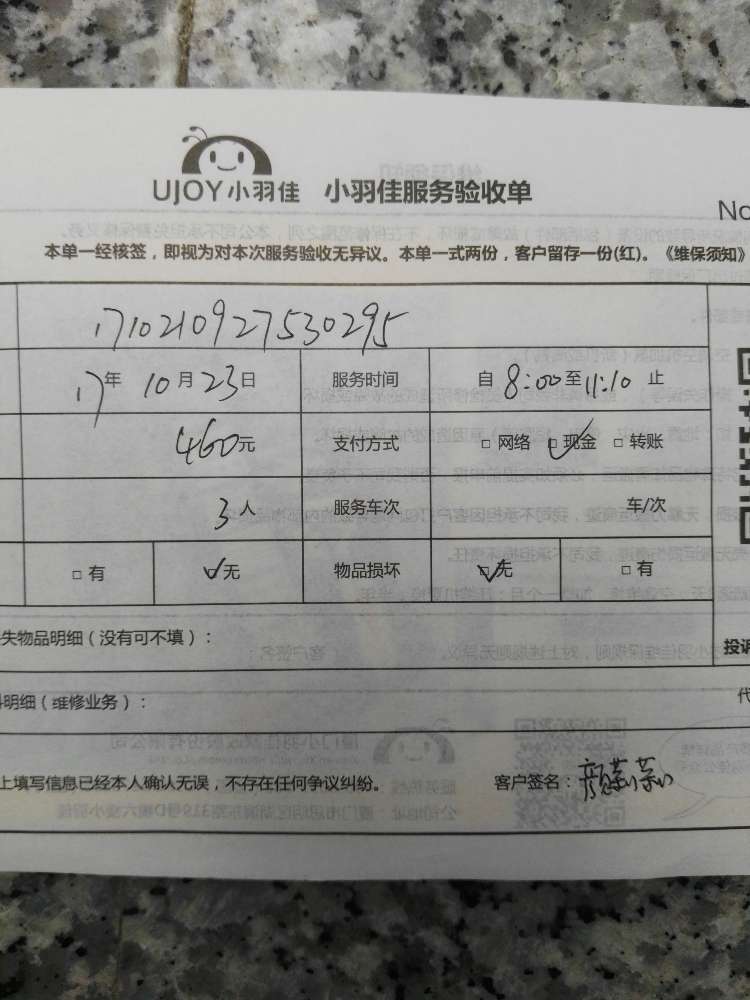 UJOY小羽佳 小羽佳服务验收单
No
本单一经核签，即视为对本次服务验收无异议。本单一式两份，客户留存一份(红)。《维保须知》
1710210927530295
17年 10月23日 服务时间 自 8:00至 11:10 止
460元 支付方式 □ 网络 ☑ 现金 □ 转账
3人 服务车次 车/次
□ 有 ☑ 无 物品损坏 ☑ 无 □ 有
失物品明细（没有可不填）： 投诉
明细（维修业务）： 代
上填写信息已经本人确认无误，不存在任何争议纠纷。 客户签名：